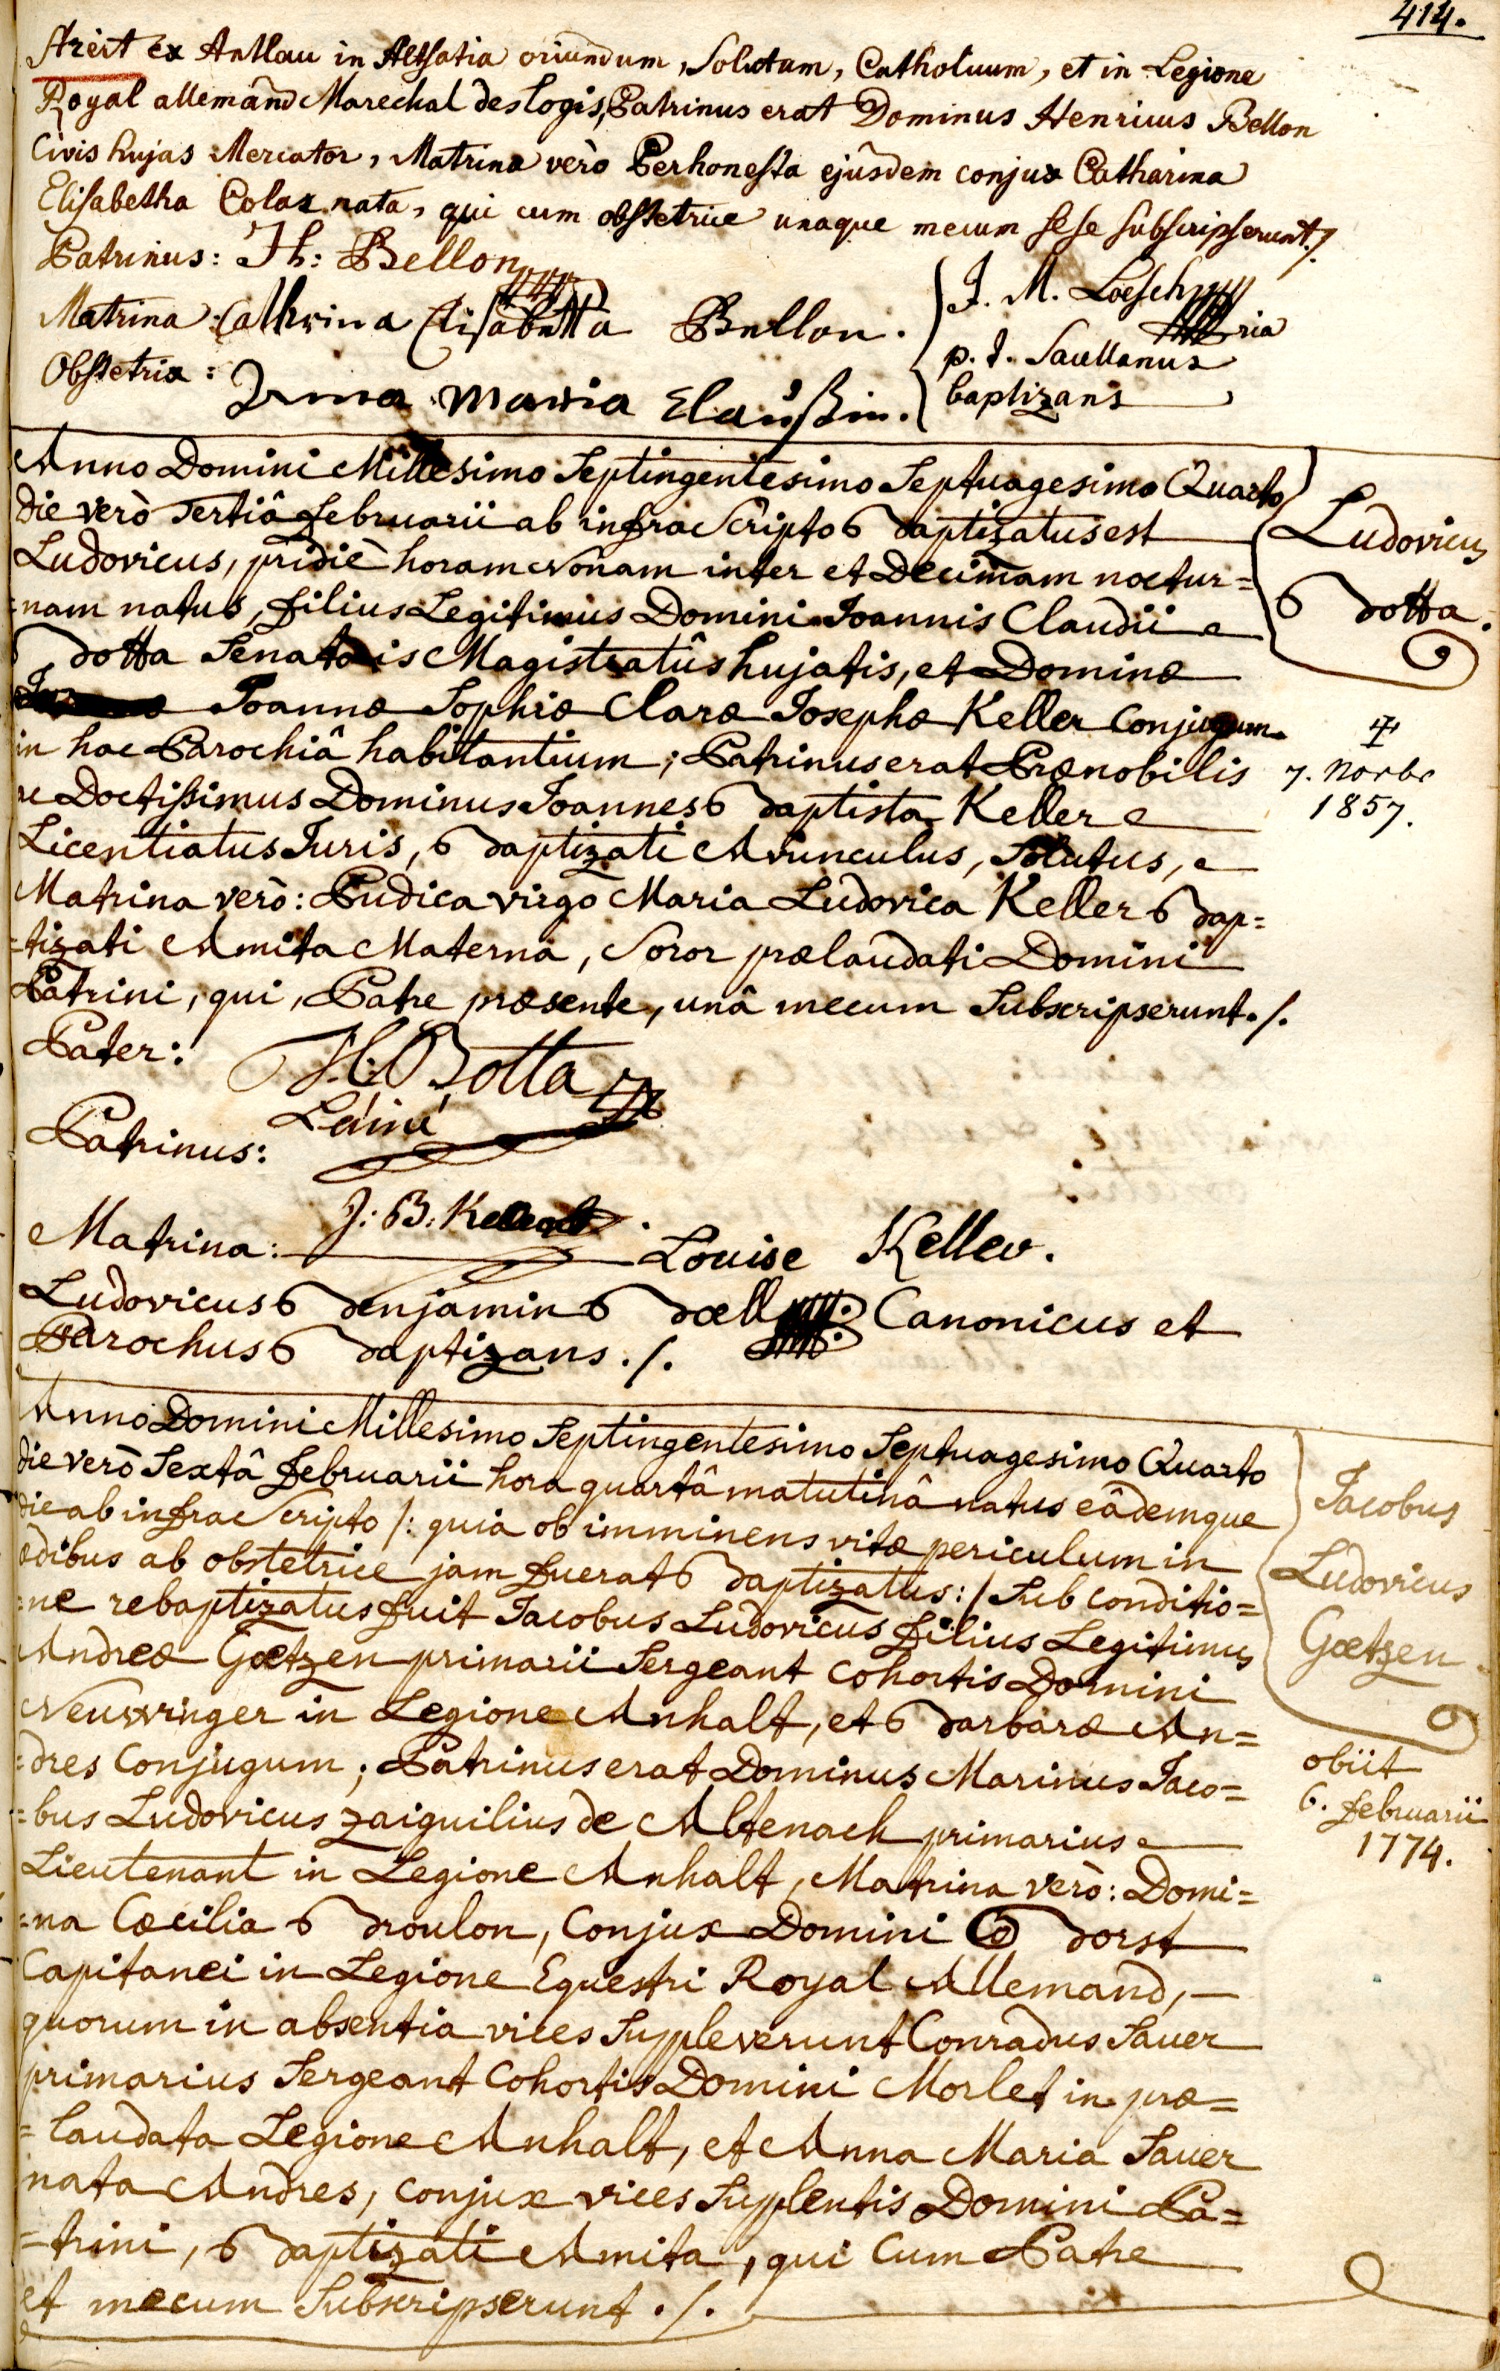 414.
Streit ex Antlau in Alsatia oriundum, Solutum, Catholicum, et in Legione
Royal allemand Marechal des logis, Patrinus erat Dominus Henricus Bellon
Civis hujas Mercator, Matrina verò Perhonesta ejûsdem conjux Catharina
Elisabetha Colaz nata, qui cum obstetrice unaque mecum sese subscripserunt./.
Patrinus: Th: Bellon
Matrina: Cathrina Elisabetta Bellon.
J. M. Loesch
p. t. Sacellanus
baptizans
Obstetrix: Anna Maria Claußin.
Anno Domini Millesimo Septingentesimo Septuagesimo Quarto
Die verò Tertiâ Februarii ab infrascripto Baptizatus est
Ludovicus, pridiè horam Nonam inter et Decimam noctur=
=nam natus, filius Legitimus Domini Joannis Claudii
Botta Senatoris Magistratûs hujatis, et Dominæ
Joannæ Sophiæ Claræ Josephæ Keller Conjugum
in hac Parochiâ habitantium; Patrinus erat Prænobilis
ac Doctissimus Dominus Joannes Baptista Keller
Licentiatus Juris, Baptizati Avunculus, Solutus,
Matrina verò: Pudica virgo Maria Ludovica Keller Bap=
=tizati Amita Materna, Soror prælaudati Domini
Patrini, qui, Patre præsente, unâ mecum Subscripserunt./.
Ludovicus
Botta.
7. Norbr
1857.
Pater: J. C. Botta
L'ainé
Patrinus:
J: B: Keller
Matrina: Louise Keller.
Ludovicus Benjamin Boell Canonicus et
Parochus Baptizans./.
Anno Domini Millesimo Septingentesimo Septuagesimo Quarto
die verò Sextâ Februarii hora quartâ matutinâ natus eâdemque
die ab infrascripto /: quia ob imminens vitæ periculum in
ædibus ab obstetrice jam fuerat Baptizatus :/ Sub conditio=
=ne rebaptizatus fuit Jacobus Ludovicus filius Legitimus
Andreæ Gœtzen primarii Sergeant Cohortis Domini
Neuwinger in Legione Anhalt, et Barbaræ An=
=dres Conjugum; Patrinus erat Dominus Marinus Jaco=
=bus Ludovicus Zaiguilius de Altenach primarius
Lieutenant in Legione Anhalt, Matrina verò: Domi=
=na Cæcilia Broulon, Conjux Domini Borst
Capitanei in Legione Equestri Royal Allemand,
quorum in absentia vices Suppleverunt Conradus Sauer
primarius Sergeant Cohortis Domini Morlet in præ=
=laudata Legione Anhalt, et Anna Maria Sauer
nata Andres, conjux vices Supplentis Domini Pa=
=trini, Baptizati Amita, qui Cum Patre
et mecum Subscripserunt./.
Jacobus
Ludovicus
Gœtzen
obiit
6. februarii
1774.